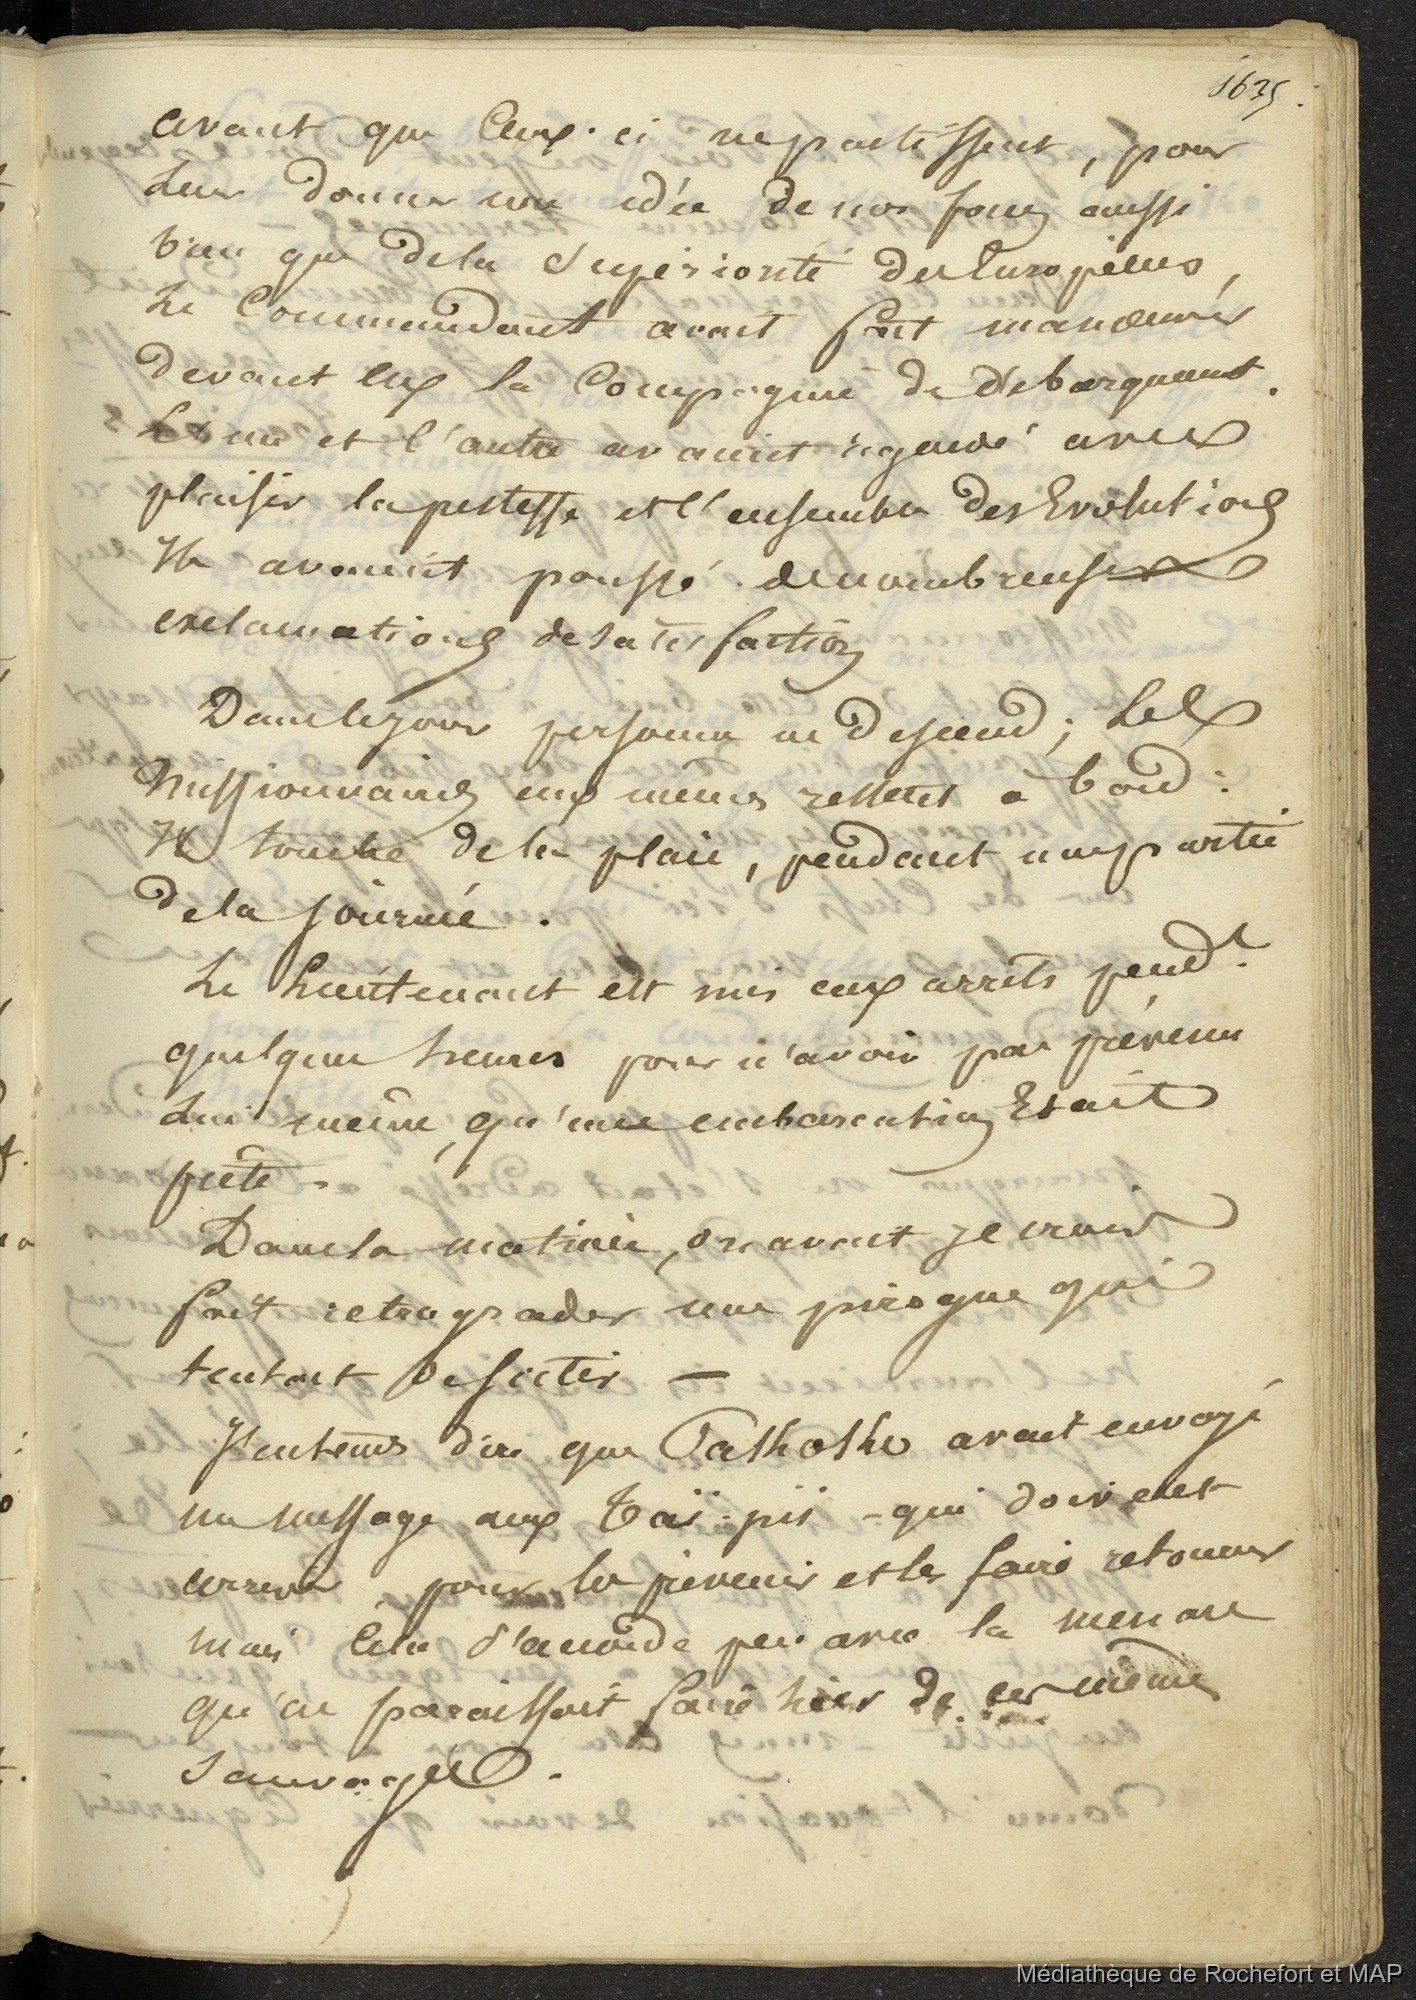 1635.
avant que Ceux-ci ne partissent, pour
Leur donner une idée de nos forces aussi
bien que de la Supériorité des Européens,
Le Commandant avait fait manœuvrer
devant Eux la Compagnie de débarquement.
L'un et l'autre avaient regardé avec
plaisir la prestesse et l'ensemble des Evolutions
Ils avaient poussé de nombreuses
exclamations de satisfaction
Dans le jour personne ne descend; Les
Missionnaires eux mêmes restent à bord:
Il tombe de la pluie, pendant une partie
de la journée.
Le Lieutenant est mis aux arrêts pendt.
quelques heures pour n'avoir pas prévenu
Lui même, qu'une embarcation Etait
prête -
Dans la matinée, on avait je crois
fait retrograder une pirogue qui
tentait de sortir -
J'entends dire que Pakhoko avait envoyé
un message aux Taï-pii - qui doivent
arriver, pour les prévenir et les faire retourner
mais Cela s'accorde peu avec la menace
qu'on paraissait faire hier de ces mêmes
Sauvages.
Médiathèque de Rochefort et MAP